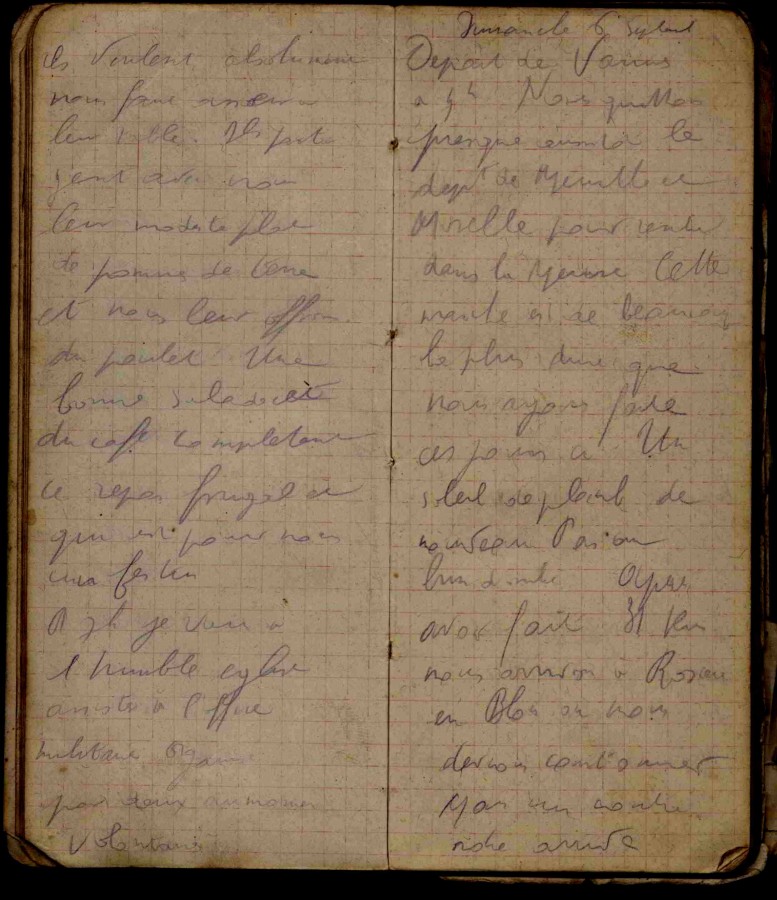 ils veulent absolument
nous faire asseoir a
leur table. Ils parta
gent avec nous
leur modeste plat
de pommes de terre
et nous leur offrons
du poulet Une
bonne salade et
du café completent
ce repas frugal et
qui est pour nous
un festin
A 7h je vais a
l humble eglise
assister a l office
militaire
par deux aumoniers
Volontaires
Dimanche 6 Sept
Depart de
a 4h Nous quittons
presque aussitot le
dept de Meurthe et
Moselle pour rentrer
dans la Meuse Cette
marche est de beaucoup
la plus dure que
nous ayons faite
ces jours ci Un
soleil de plomb de
nouveau Pas un
brin d ombre Apres
avoir fait 31 Km
nous arrivons a Rosieres
en Blois ou nous
devons cantonner
Mais un contre
notre arrivée